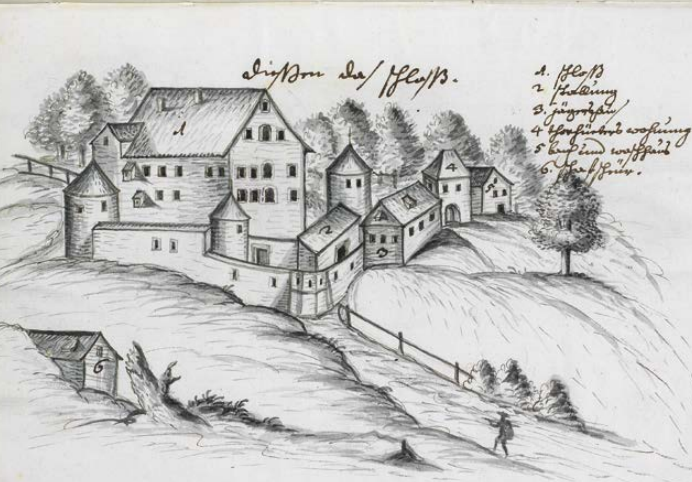 Dießen das schloß.
1. schloß
2 stallung
3. jägerhau/
4 thorhüters wohnung
5 bach und waschhaus
6. schafscheur.
1
2
3
4
5
6